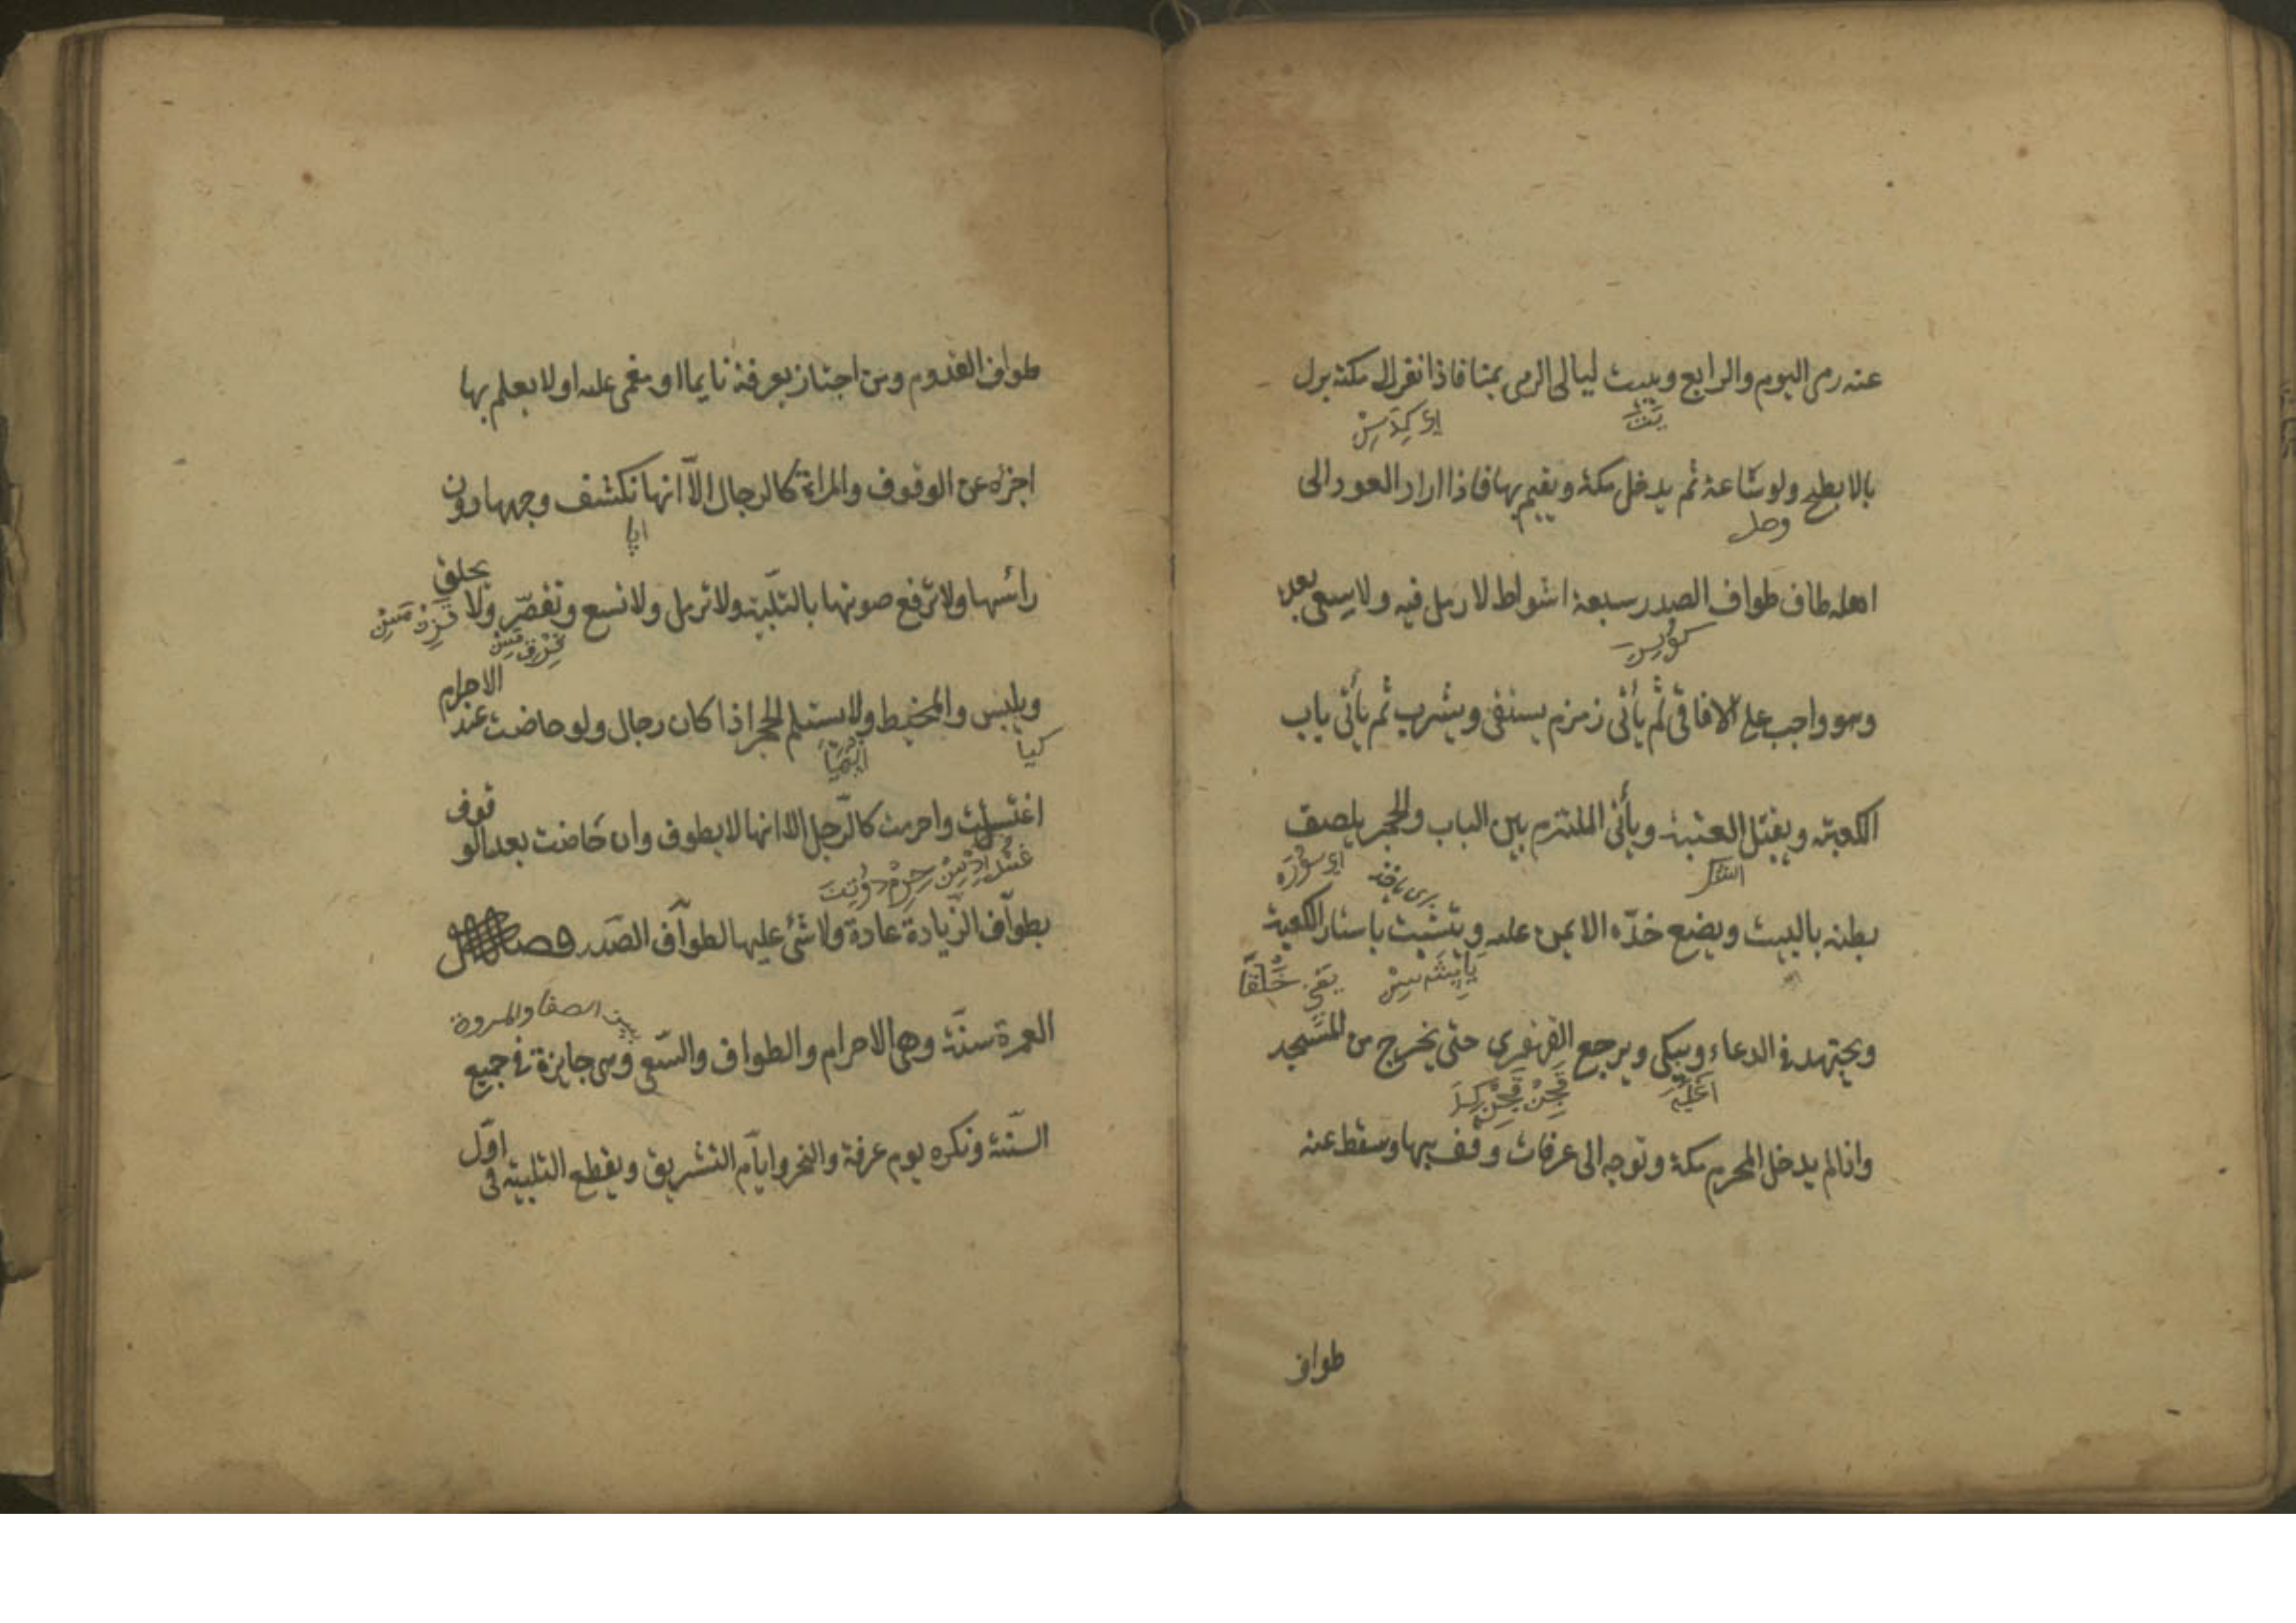 عنه رمى اليوم والرابع ويبيت ليالى الرمى بمنا فاذا نفر الى مكة نزل
بالابطح ولو ساعة ثم يدخل مكة ويقيم بها فاذا اراد العود الى
وحل
اهله طاف طواف الصدر سبعة اشواط لا رمل فيه ولا سعى بعده
وهو واجب على الافاقى ثم يأتى زمزم يستقى ويشرب ثم يأتى باب
الكعبة ويقبّل العتبة ويأتى الملتزم بين الباب والحجر يلصق
بطنه بالبيت ويضع خدّه الايمن عليه ويتشبث باستار الكعبة
ويجتهد فى الدعاء ويبكى ويرجع القهقرى حتى يخرج من المسجد
واذا لم يدخل المحرم مكة وتوجه الى عرفات وقف بها وسقط عنه
طواف
طواف القدوم ومن اجتاز بعرفة نايما او مغمى عليه او لا يعلم بها
اجزاه عن الوقوف والمراة كالرجال الّا انها تكشف وجهها دون
رأسها ولا ترفع صوتها بالتلبية ولا ترمل ولا تسع وتقصّر ولا يحلق
ويلبس والمخيط ولا يستلم الحجر اذا كان رجال ولو حاضت عند الاحرام
اغتسلت واحرمت كالرّجل الا انها لا يطوف وان حاضت بعد الوقوف
بطواف الزّيادة عادة ولا شئ عليها لطواف الصّدر فصل
بين الصفا والمروة
العمرة سنّة وهى الاحرام والطواف والسّعى وهى جايزة فى جميع
السّنة وتكره يوم عرفة والنحر وايّام التشريق ويقطع التلبية فى اوّل